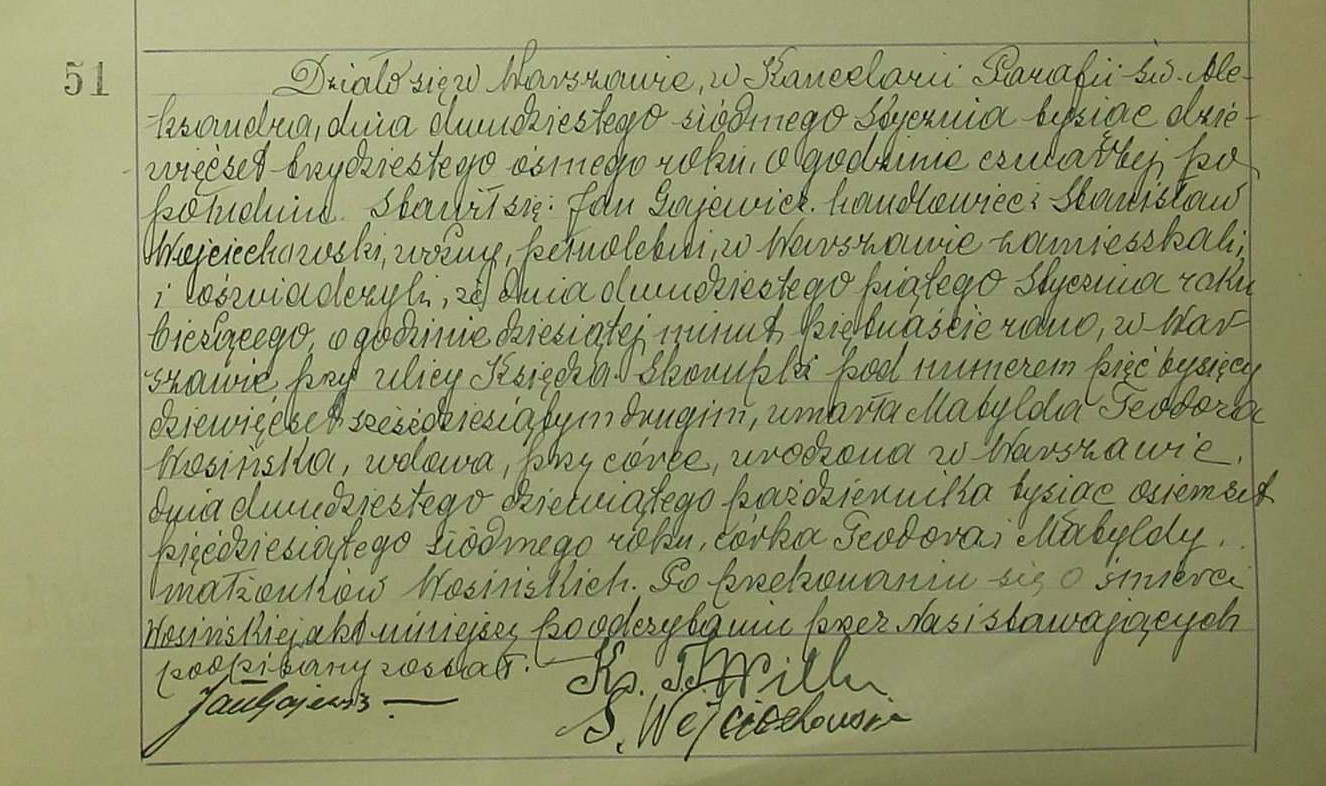 51
Działo się w Warszawie, w Kancelarii Parafii św. Ale-
ksandra, dnia dwudziestego siódmego Stycznia tysiąc dzie-
więćset trzydziestego ósmego roku, o godzinie czwartej po
południu. Stawił się: Jan Gajewicz. handlowiec i Stanisław
Wojciechowski, woźny, pełnoletni, w Warszawie zamieszkali,
i oświadczyli, że dnia dwudziestego piątego Stycznia roku
bieżącego, o godzinie dziesiątej minut piętnaście rano, w War-
szawie przy ulicy Księdza Skorupki pod numerem pięć tysięcy
dziewięćset sześćdziesiątym drugim, umarła Matylda Teodora
Wosińska, wdowa, przy córce, urodzona w Warszawie,
dnia dwudziestego dziewiątego października tysiąc osiemset
pięćdziesiątego siódmego roku, córka Teodora i Matyldy
małżonków Wosińskich. Po przekonaniu się o śmierci
Wosińskiej akt niniejszy po odczytaniu przez Nas i stawających
podpisany został. — Ks. T. Wilk
Jan Gajewicz —
S. Wojciechowski